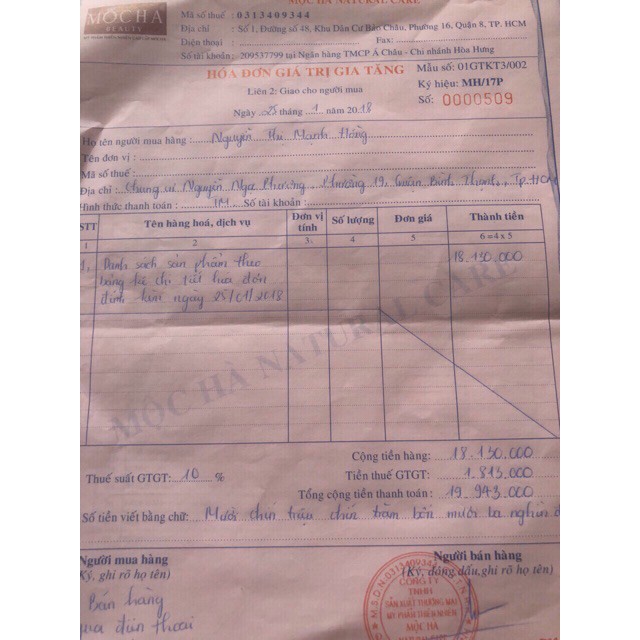 MỘC HÀ NATURAL CARE
MỘC HÀ
BEAUTY
Mã số thuế : 0313409344
Địa chỉ : Số 1, Đường số 48, Khu Dân Cư Bảo Châu, Phường 16, Quận 8, TP. HCM
Điện thoại : Fax:
Số tài khoản: 209537799 tại Ngân hàng TMCP Á Châu - Chi nhánh Hòa Hưng
HÓA ĐƠN GIÁ TRỊ GIA TĂNG
Mẫu số: 01GTKT3/002
Liên 2: Giao cho người mua
Ký hiệu: MH/17P
Ngày 25 tháng 1 năm 2018
Số: 0000509
Họ tên người mua hàng : Nguyễn Thị Mạnh Hồng
Tên đơn vị :
Mã số thuế :
Địa chỉ : Chung cư Nguyễn Ngọc Phương, Phường 19, Quận Bình Thạnh, Tp.HCM
Hình thức thanh toán: TM Số tài khoản:
STT Tên hàng hoá, dịch vụ Đơn vị tính Số lượng Đơn giá Thành tiền
1 2 3 4 5 6 = 4 x 5
1, Danh sách sản phẩm theo 18.130.000
bảng kê chi tiết hóa đơn
đính kèm ngày 25/01/2018
MỘC HÀ NATURAL CARE
Cộng tiền hàng: 18.130.000
Thuế suất GTGT: 10 % Tiền thuế GTGT: 1.813.000
Tổng cộng tiền thanh toán: 19.943.000
Số tiền viết bằng chữ: Mười chín triệu chín trăm bốn mươi ba nghìn đ
Người mua hàng
Người bán hàng
(Ký, ghi rõ họ tên)
(Ký, đóng dấu, ghi rõ họ tên)
Bán hàng
qua điện thoại
M.S.D.N:0313409344
CÔNG TY
TNHH
SẢN XUẤT THƯƠNG MẠI
MỸ PHẨM THIÊN NHIÊN
MỘC HÀ